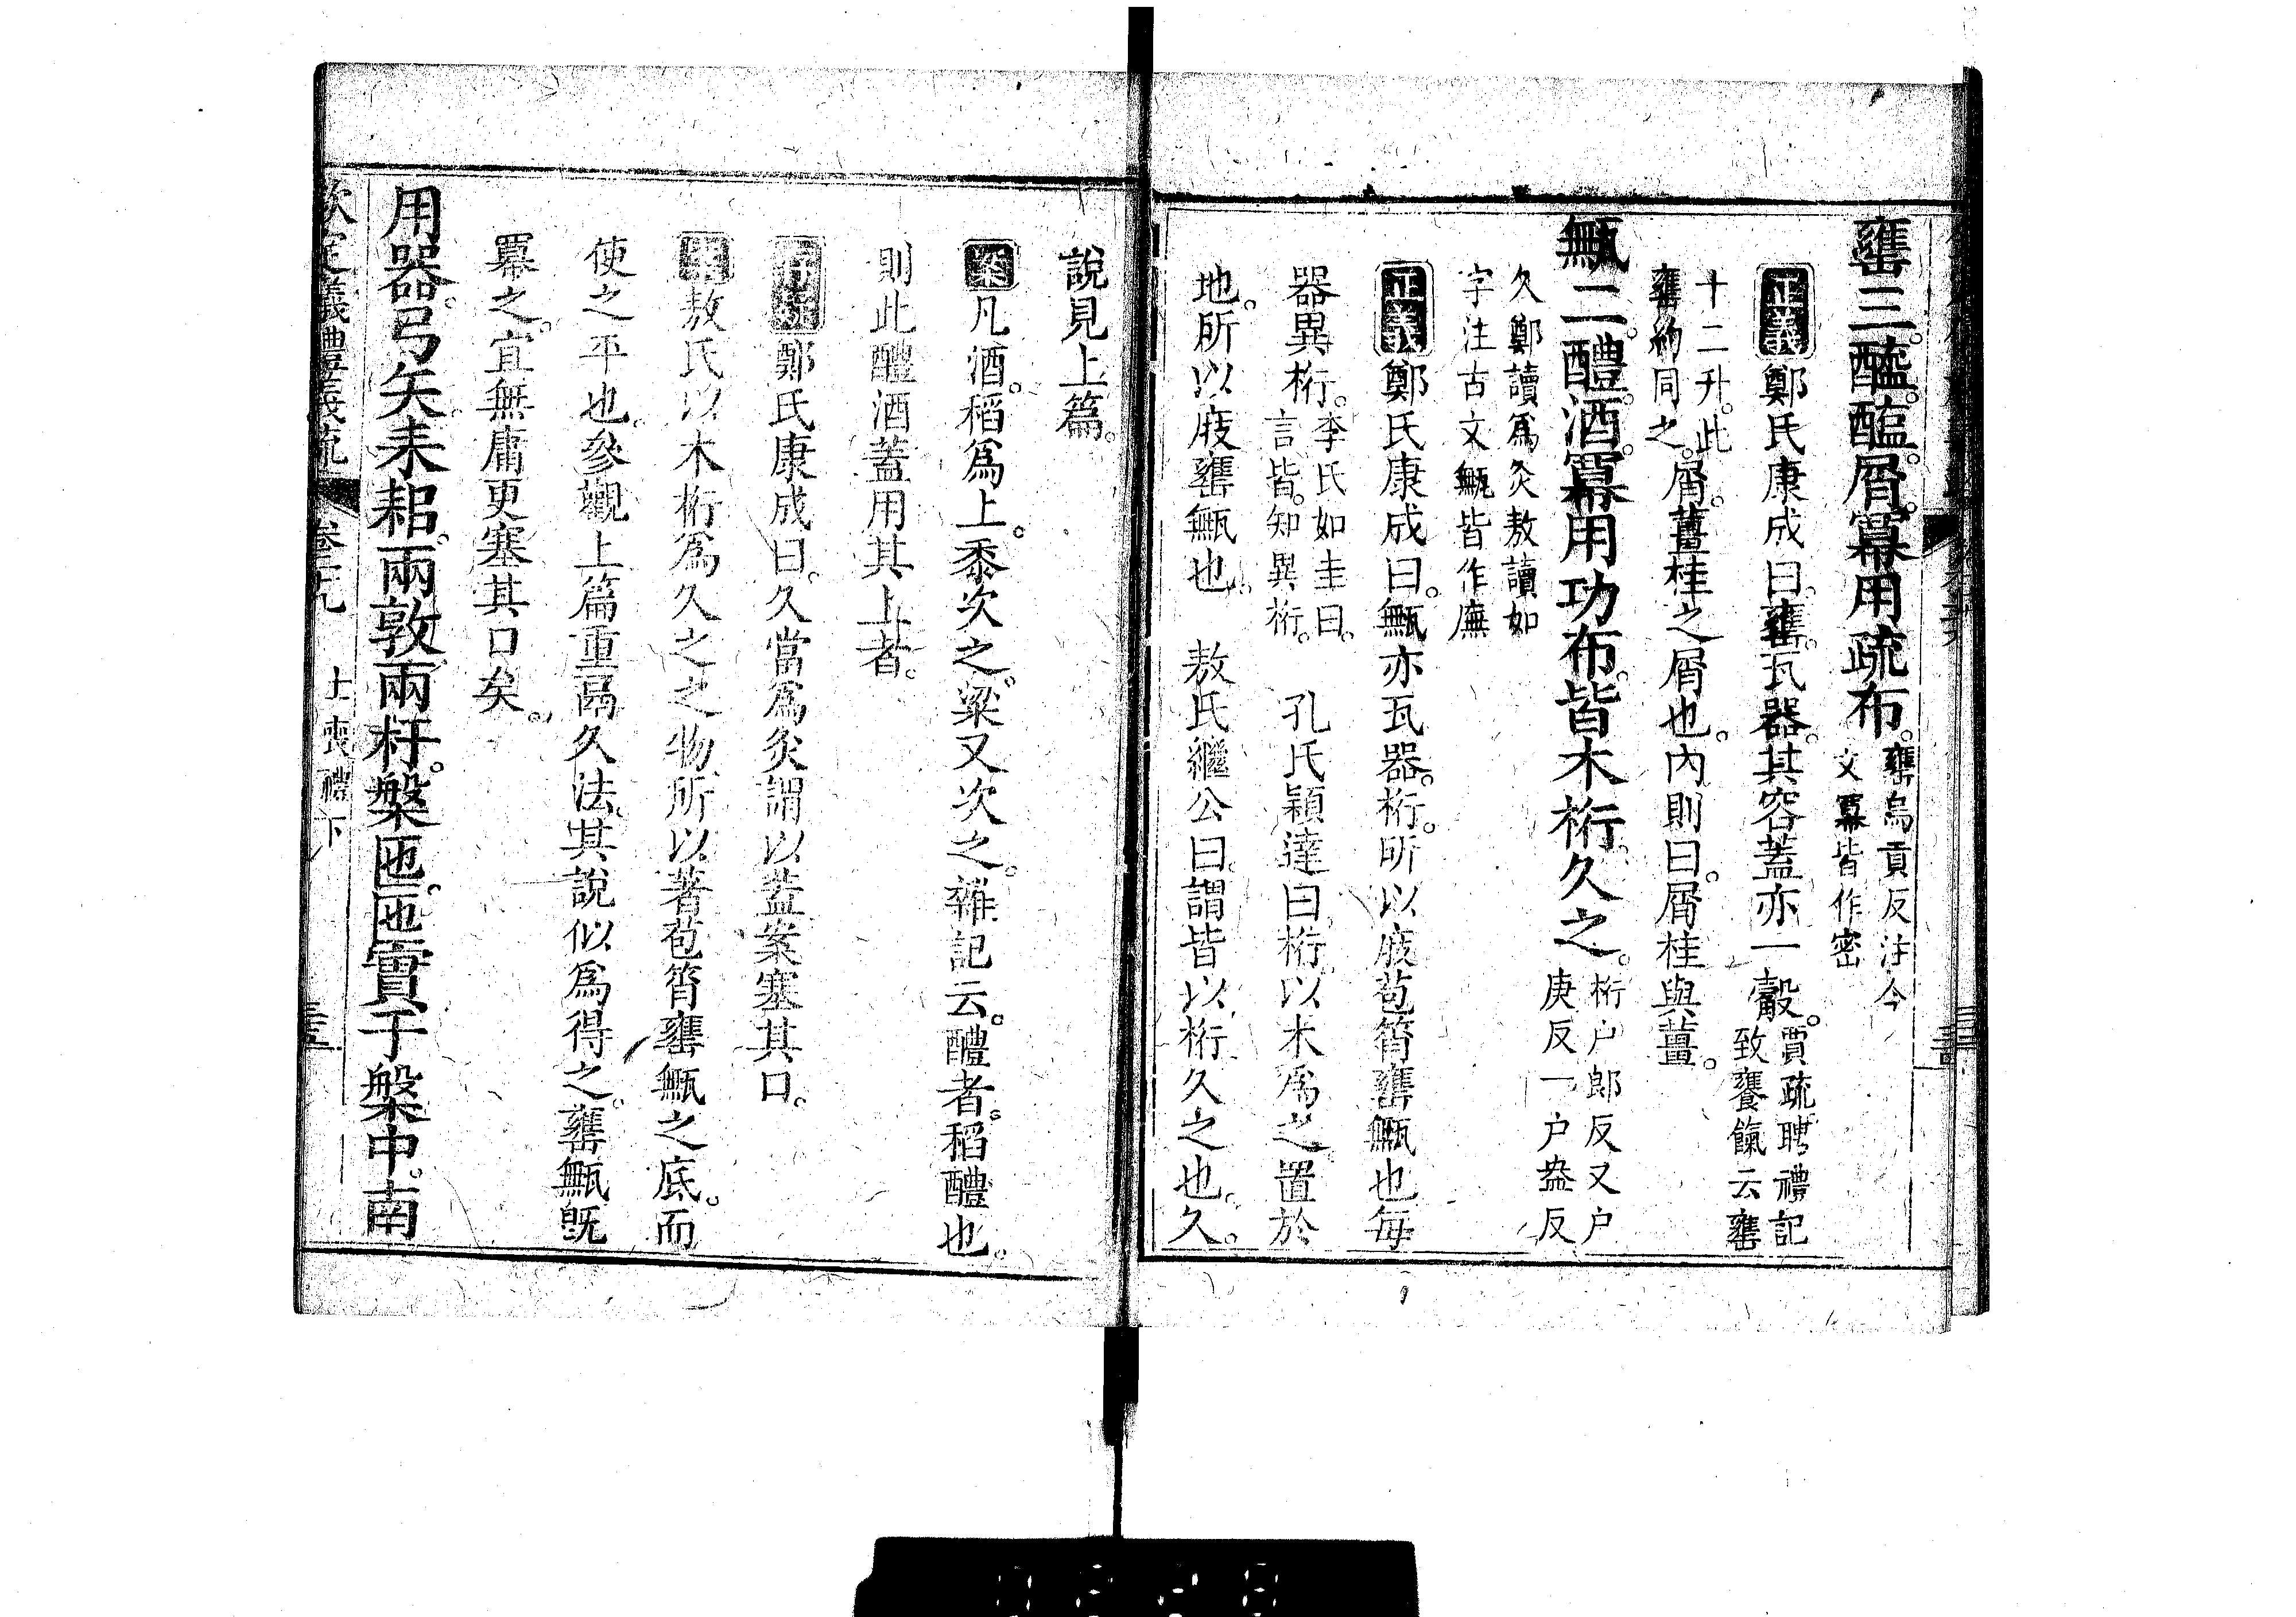 罋三。醯。醢。屑。冪用疏布。罋烏貢反注今
文冪皆作密
正義鄭氏康成曰。罋。瓦器。其容蓋亦一觳。賈疏聘禮記
致饔餼云罋
十二升。此
罋約同之。屑。薑桂之屑也。內則曰。屑桂與薑。
甒二。醴。酒。冪用功布。皆木桁。久之。桁户郎反又户
庚反一户盎反
久鄭讀為灸敖讀如
字注古文甒皆作廡
正義鄭氏康成曰。甒亦瓦器。桁。所以庪苞筲罋甒也每
器異桁。李氏如圭曰。
言皆。知異桁。 孔氏穎達曰。桁以木為之置於
地。所以庪罋甒也。 敖氏繼公曰。謂皆以桁久之也。久。
說見上篇。
案凡酒。稻為上。黍次之。粱又次之。雜記云。醴者。稻醴也。
則此醴酒蓋用其上者。
存疑鄭氏康成曰。久當為灸謂以蓋案塞其口。
案敖氏以木桁為久之之物。所以著苞筲罋甒之底。而
使之平也。參觀上篇重鬲久法。其說似為得之。罋甒旣
冪之。宜無庸更塞其口矣。
用器。弓矢耒耜。兩敦兩杅。槃匜。匜實于槃中。南
欽定儀禮義疏 卷二十九 士喪禮下